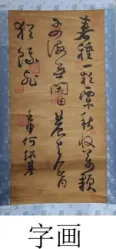 春種一粒粟秋收萬顆
子四海無閒田農夫
猶餓死
何紹基
字画